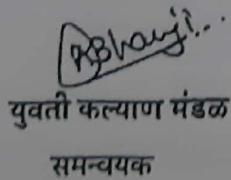 युवती कल्याण मंडळ
समन्वयक